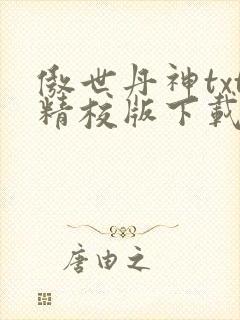 傲世丹神txt
精校版下載
唐由之